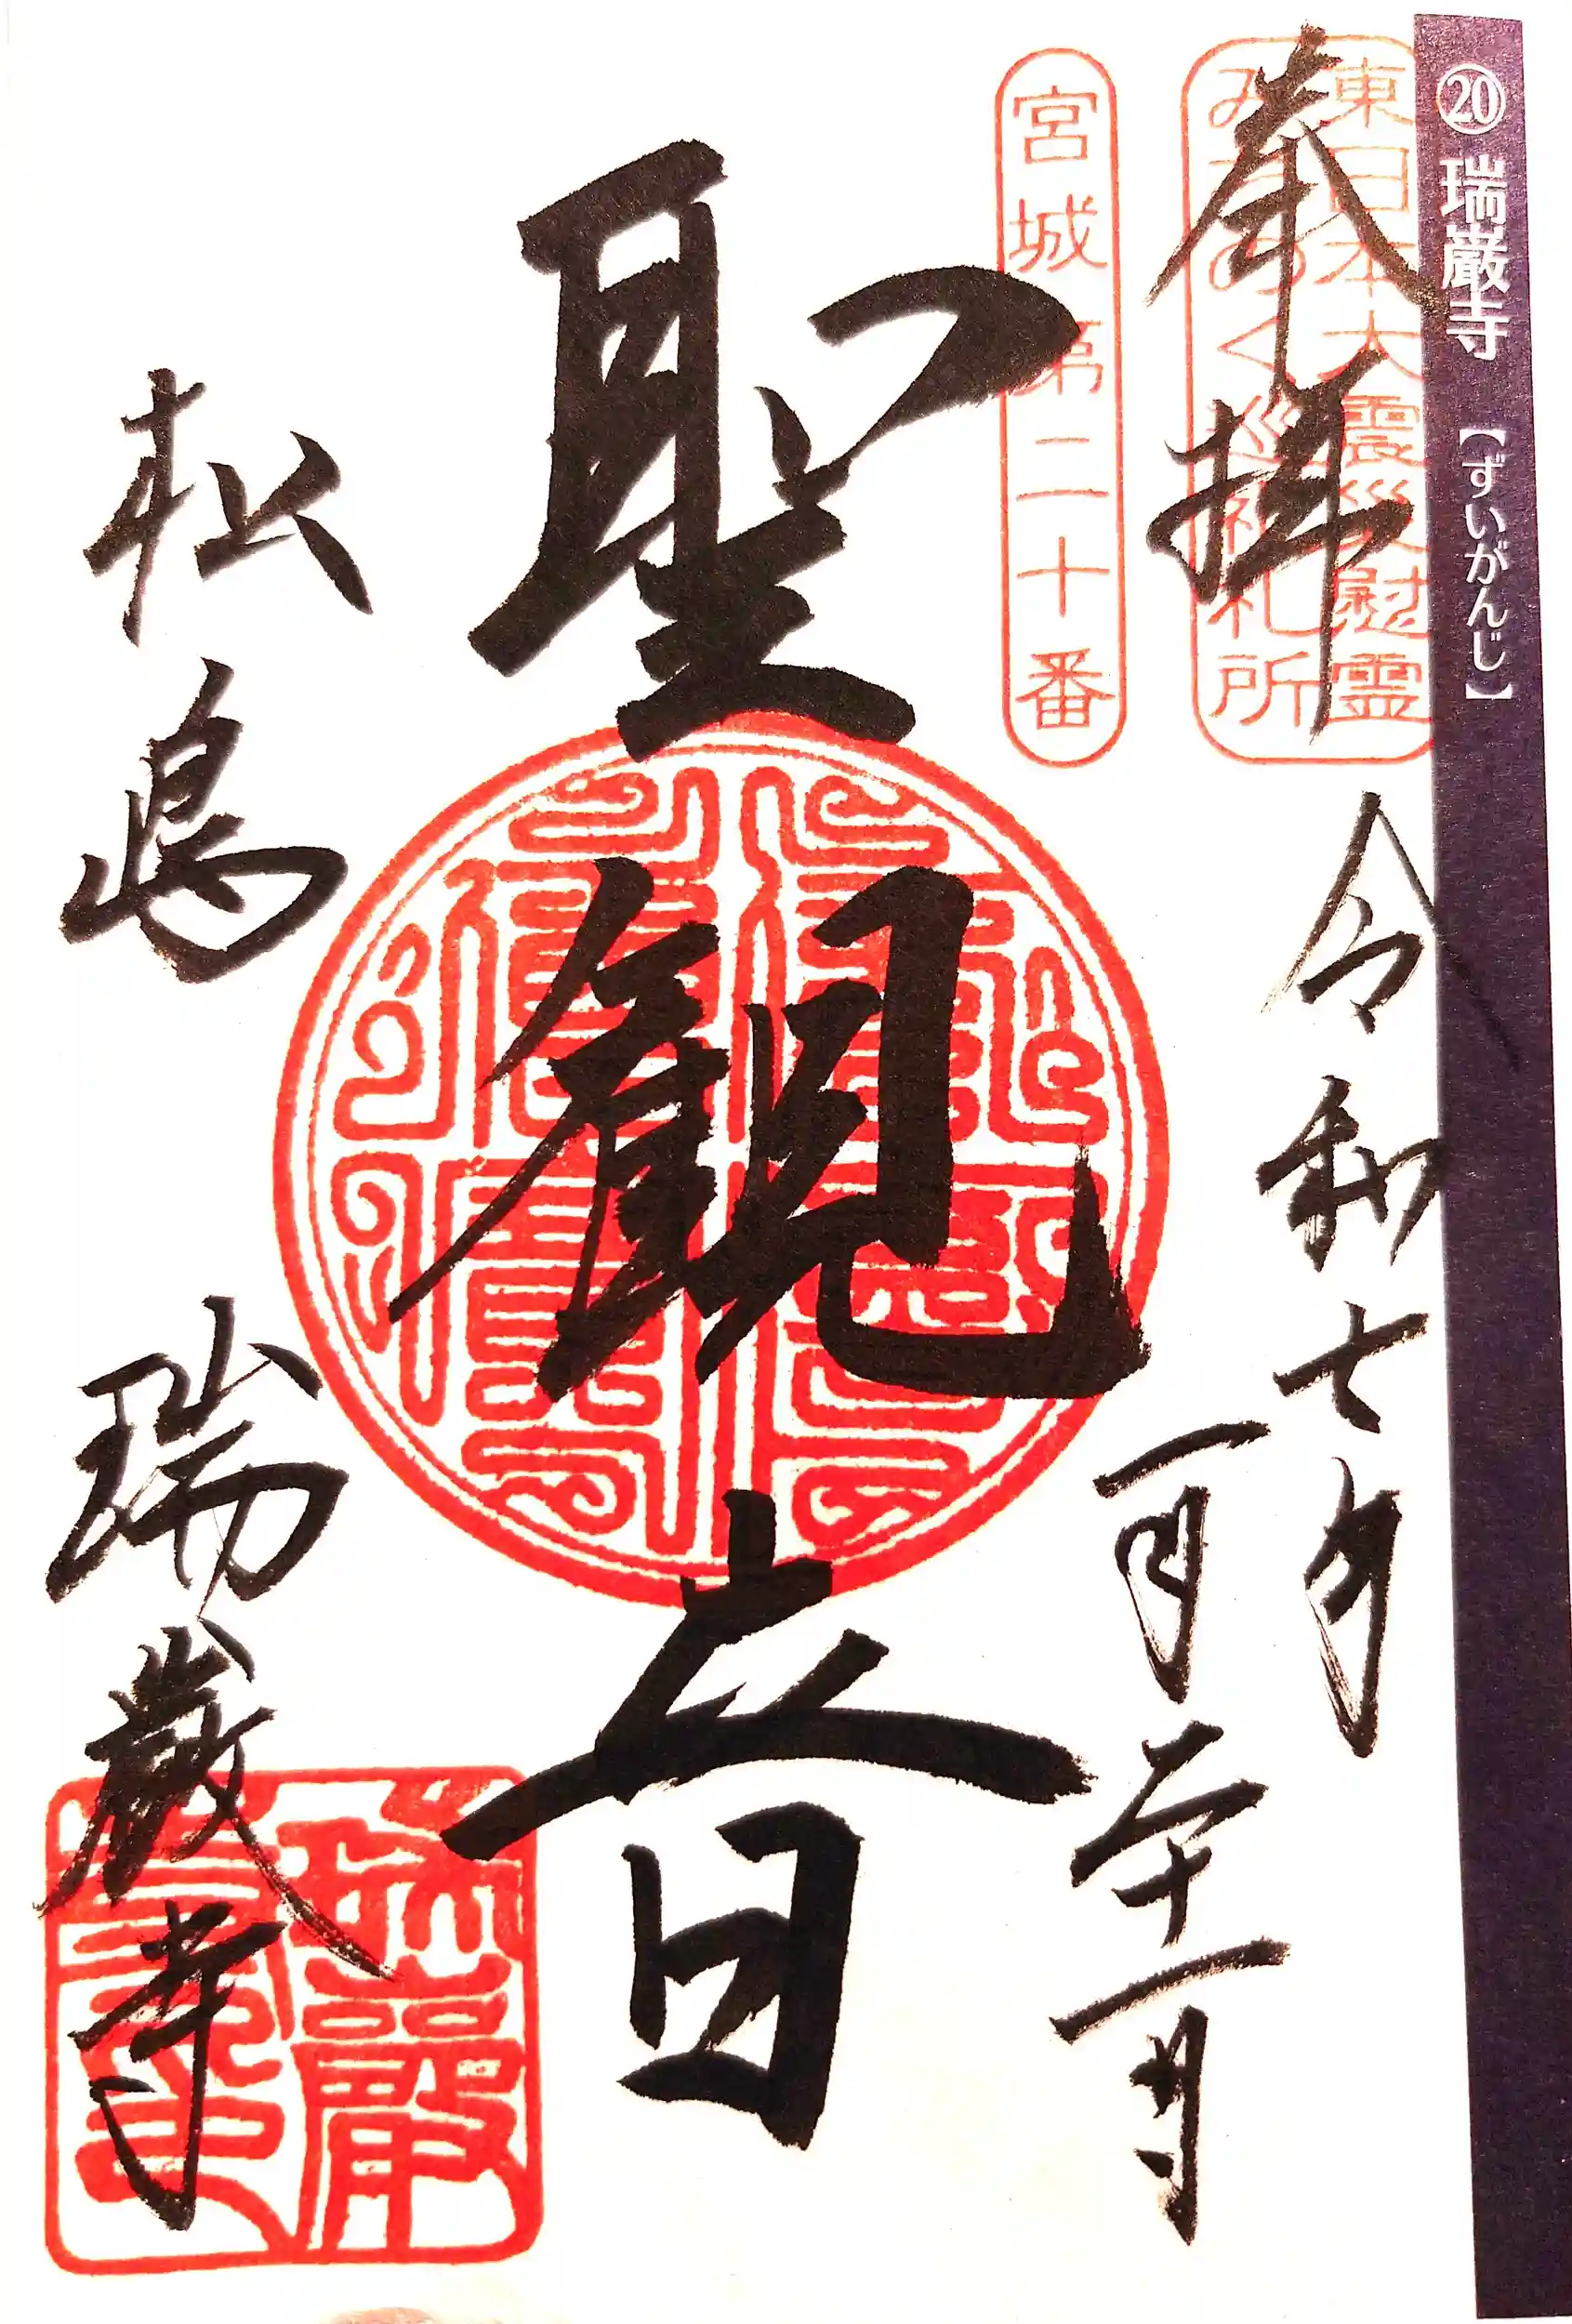 ⑳ 瑞巌寺【ずいがんじ】
東日本大震災慰霊
みちのく巡礼札所
奉拝
令和七年
一月二十一日
宮城第二十番
聖観音
松嶋
瑞巌寺